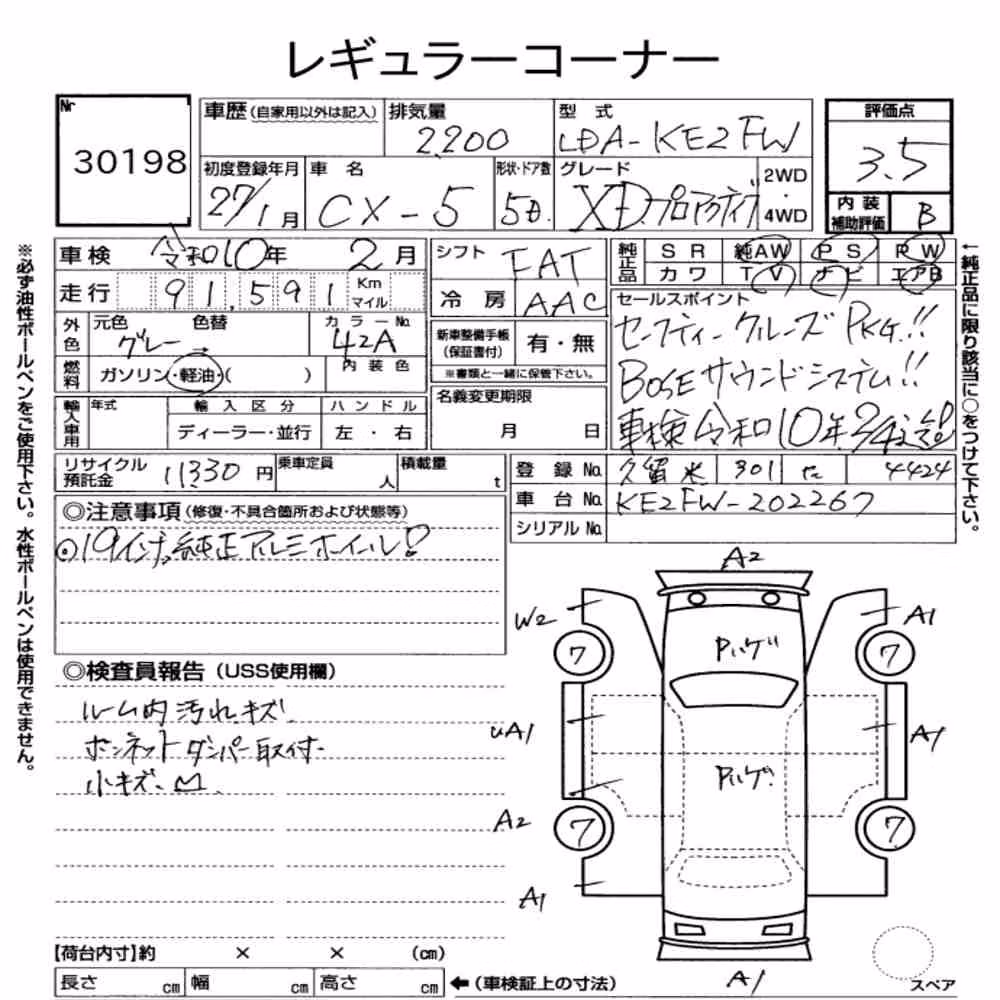 レギュラーコーナー
Nr
30198
車歴 (自家用以外は記入)
排気量
2,200
型式
LDA-KE2FW
評価点
3.5
初度登録年月
27/1月
車名
CX-5
形状・ドア数
5D.
グレード
XDプロアクティブ
2WD
・
4WD
内装
補助評価
B
車検
令和10年 2月
走行
91,591
Km
マイル
シフト
FAT
冷房
AAC
純正品
SR 純AW PS PW
カワ TV ナビ エアB
外色
元色 色替
グレー →
カラーNo.
42A
燃料
ガソリン・軽油・( )
内装色
新車整備手帳
(保証書付)
有・無
※書類と一緒に保管下さい。
セールスポイント
セーフティークルーズPKG!!
BOSEサウンドシステム!!
車検令和10年2月
輸入車用
年式
輸入区分
ディーラー・並行
ハンドル
左・右
名義変更期限
月 日
リサイクル
預託金
11330円
乗車定員
人
積載量
t
登録No.
久留米 301 た 4424
車台No.
KE2FW-202267
シリアルNo.
◎注意事項 (修復・不具合箇所および状態等)
◎19インチ純正アルミホイール!!
◎検査員報告 (USS使用欄)
ルーム内汚れキズ.
ボンネットダンパー取付.
小キズ.
A2
W2
A1
7
7
Pハゲ
uA1
A1
Pハゲ
A2
7
7
A1
A1
スペア
【荷台内寸】約 × × (cm)
長さ cm 幅 cm 高さ cm
←(車検証上の寸法)
※必ず油性ボールペンをご使用下さい。水性ボールペンは使用できません。
←純正品に限り該当に○をつけて下さい。